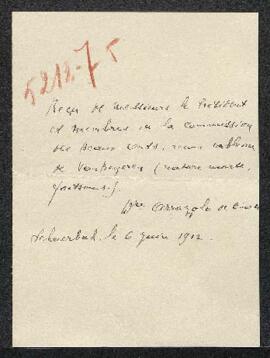 5212-75
Reçu de Messieurs le Président
et membres de la commission
des Beaux arts, mon tableau
de Van Beyeren (nature morte,
poissons).
Arrazola de
Schaerbeek, le 6 juin 1912.